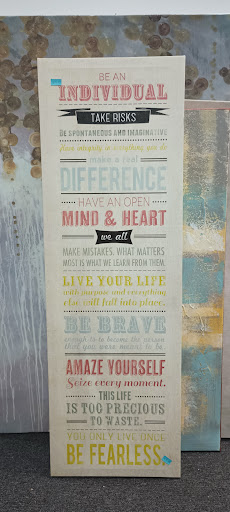 BE AN
INDIVIDUAL
TAKE RISKS
BE SPONTANEOUS AND IMAGINATIVE
show integrity in everything you do
make a real
DIFFERENCE
HAVE AN OPEN
MIND & HEART
we all
MAKE MISTAKES, WHAT MATTERS
MOST IS WHAT WE LEARN FROM THEM.
LIVE YOUR LIFE
with purpose and everything
else will fall into place.
BE BRAVE
enough to to become the person
that you were meant to be.
AMAZE YOURSELF
Seize every moment.
THIS LIFE
IS TOO PRECIOUS
TO WASTE.
YOU ONLY LIVE ONCE
BE FEARLESS.